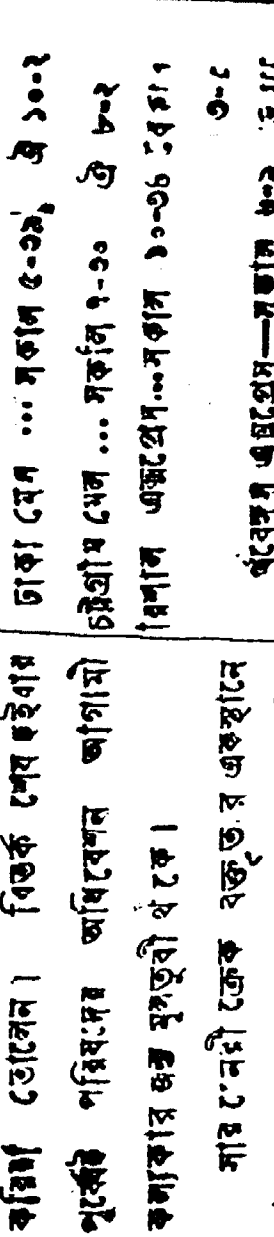 করিয়া তোলেন। বিতর্ক শেষ হইবার
পূর্ব্বেই পরিষদের অধিবেশন আগামী
কল্যকার জন্য মুলতুবী থাকে।
সার হেনরী ক্রেক বক্তৃতার একস্থানে
ঢাকা মেল ... সকাল ৫-৩৯, ঐ ১০-২
চট্টগ্রাম মেল ... সকাল ৭-১০ ঐ ৮-২
রিশাল এক্সপ্রেস...সকাল ১০-৩৬
৩-৫
র্ধবেঙ্গল এক্সপ্রেস—সকাল